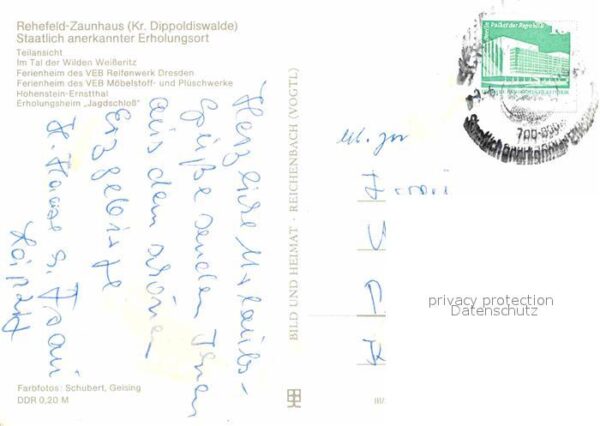 Rehefeld-Zaunhaus (Kr. Dippoldiswalde)
Staatlich anerkannter Erholungsort
Teilansicht
Im Tal der Wilden Weißeritz
Ferienheim des VEB Reifenwerk Dresden
Ferienheim des VEB Möbelstoff- und Plüschwerke
Hohenstein-Ernstthal
Erholungsheim „Jagdschloß"
Herzliche Urlaubs-
grüße senden Ihnen
aus dem schönen
Erzgebirge
H. Haase u. Frau
Farbfotos: Schubert, Geising
DDR 0,20 M
BILD UND HEIMAT · REICHENBACH (VOGTL)
Palast der Republik
10
privacy protection
Datenschutz